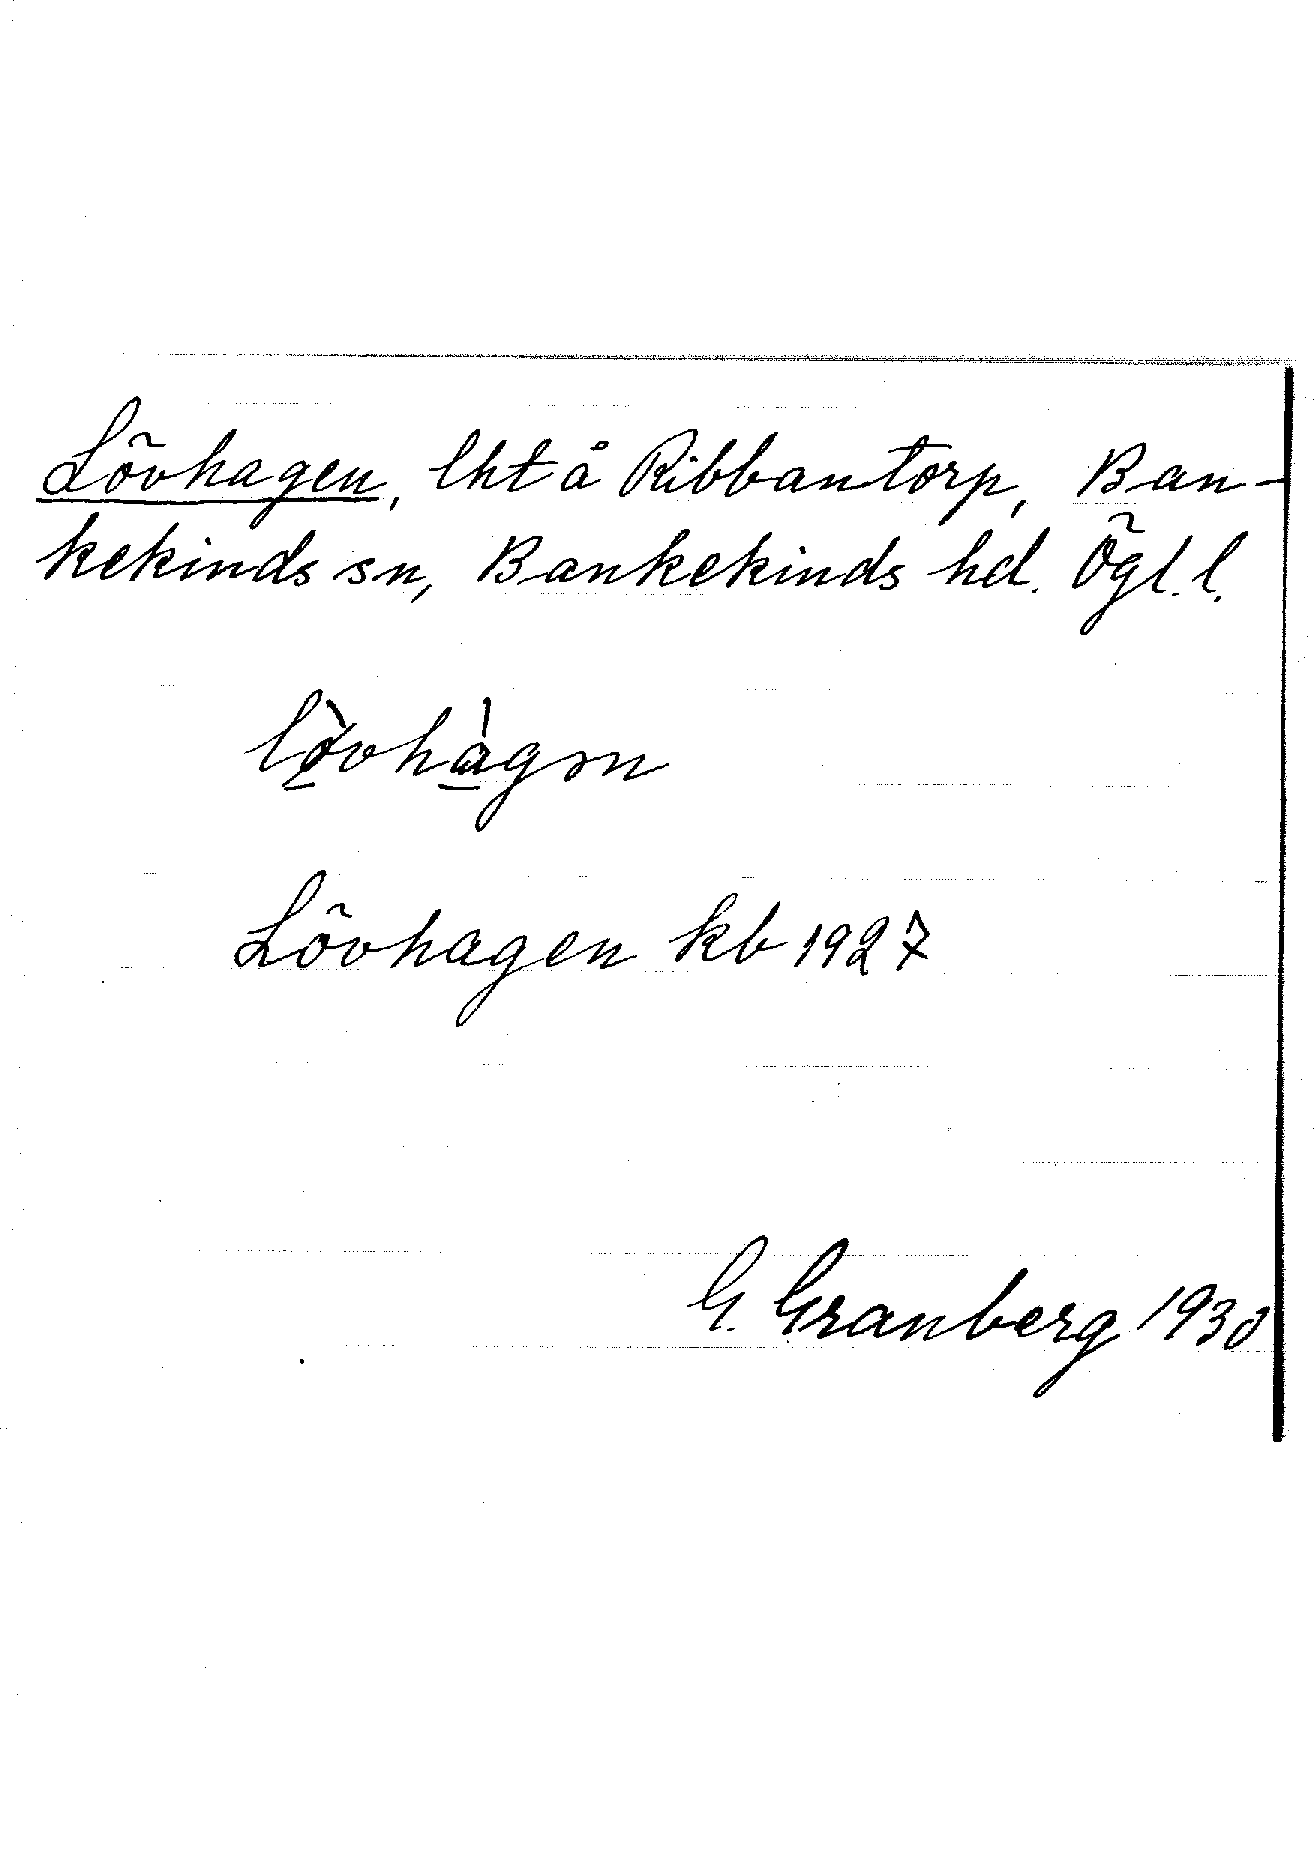 Lövhagen, lht å Ribbantorp, Ban-
kekinds sn, Bankekinds hd. Ögl. l.
lövhagən
Lövhagen kb 1927
G. Granberg 1930